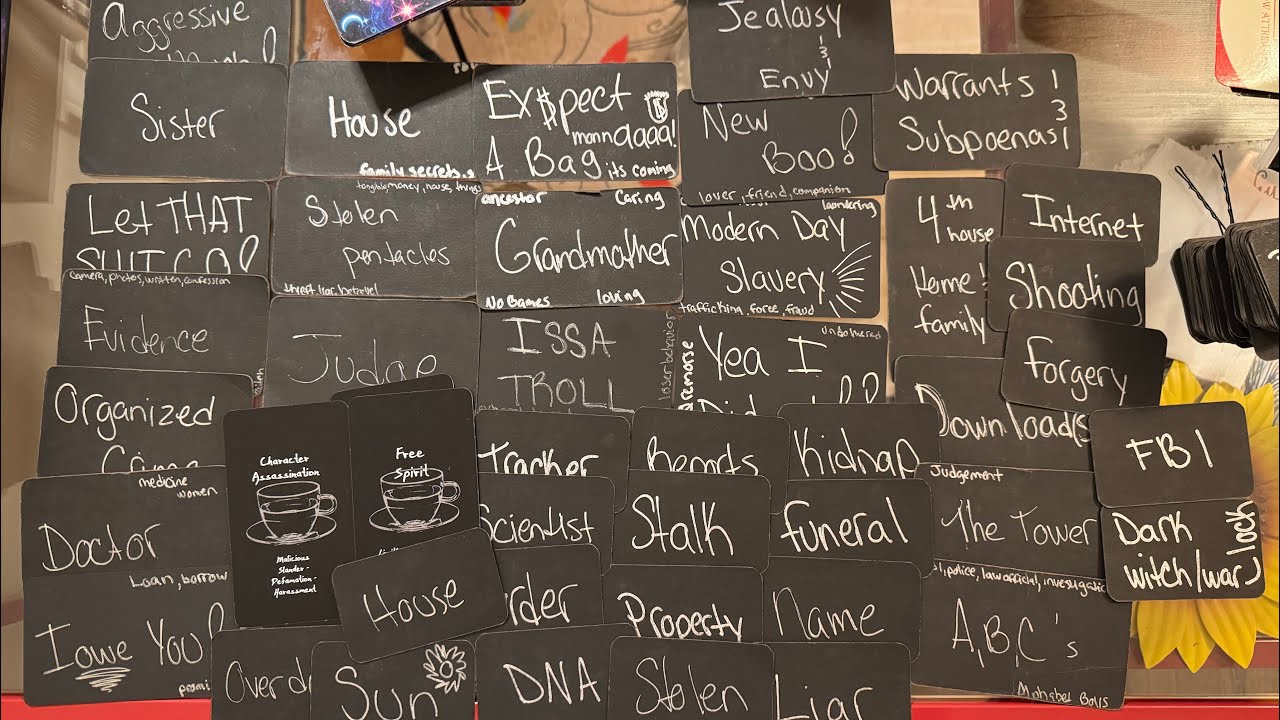 Aggressive
Sister
House
family secrets
Ex$pect
manndaaa!
A Bag its coming
Jealousy
&
Envy
New
Boo!
lover, friend, companion
Warrants
&
Subpoenas
Let THAT
SHIT GO!
tangible money, house, things
Stolen
pentacles
ancestor Caring
Grandmother
No Games loving
Modern Day
Slavery
trafficking, force, fraud
4th
house
Home
family
Internet
Shooting
Forgery
camera, photos, written, confession
Evidence
Judge
ISSA
TROLL
loser behavior
remorse
Yea I
Did
Download(s
FBI
Organized
Crime
Character
Assassination
Malicious
Slander -
Defamation -
Harassment
Free
Spirit
Tracker
Kidnap
Judgement
The Tower
Dark
witch/war
lock
medicine
women
Doctor
Scientist
Stalk
funeral
Loan, borrow
I owe You!
House
rder
Property
Name
police, law official,
A,B,C's
Alphabet Boys
Overd
Sun
DNA
Stolen
Liar